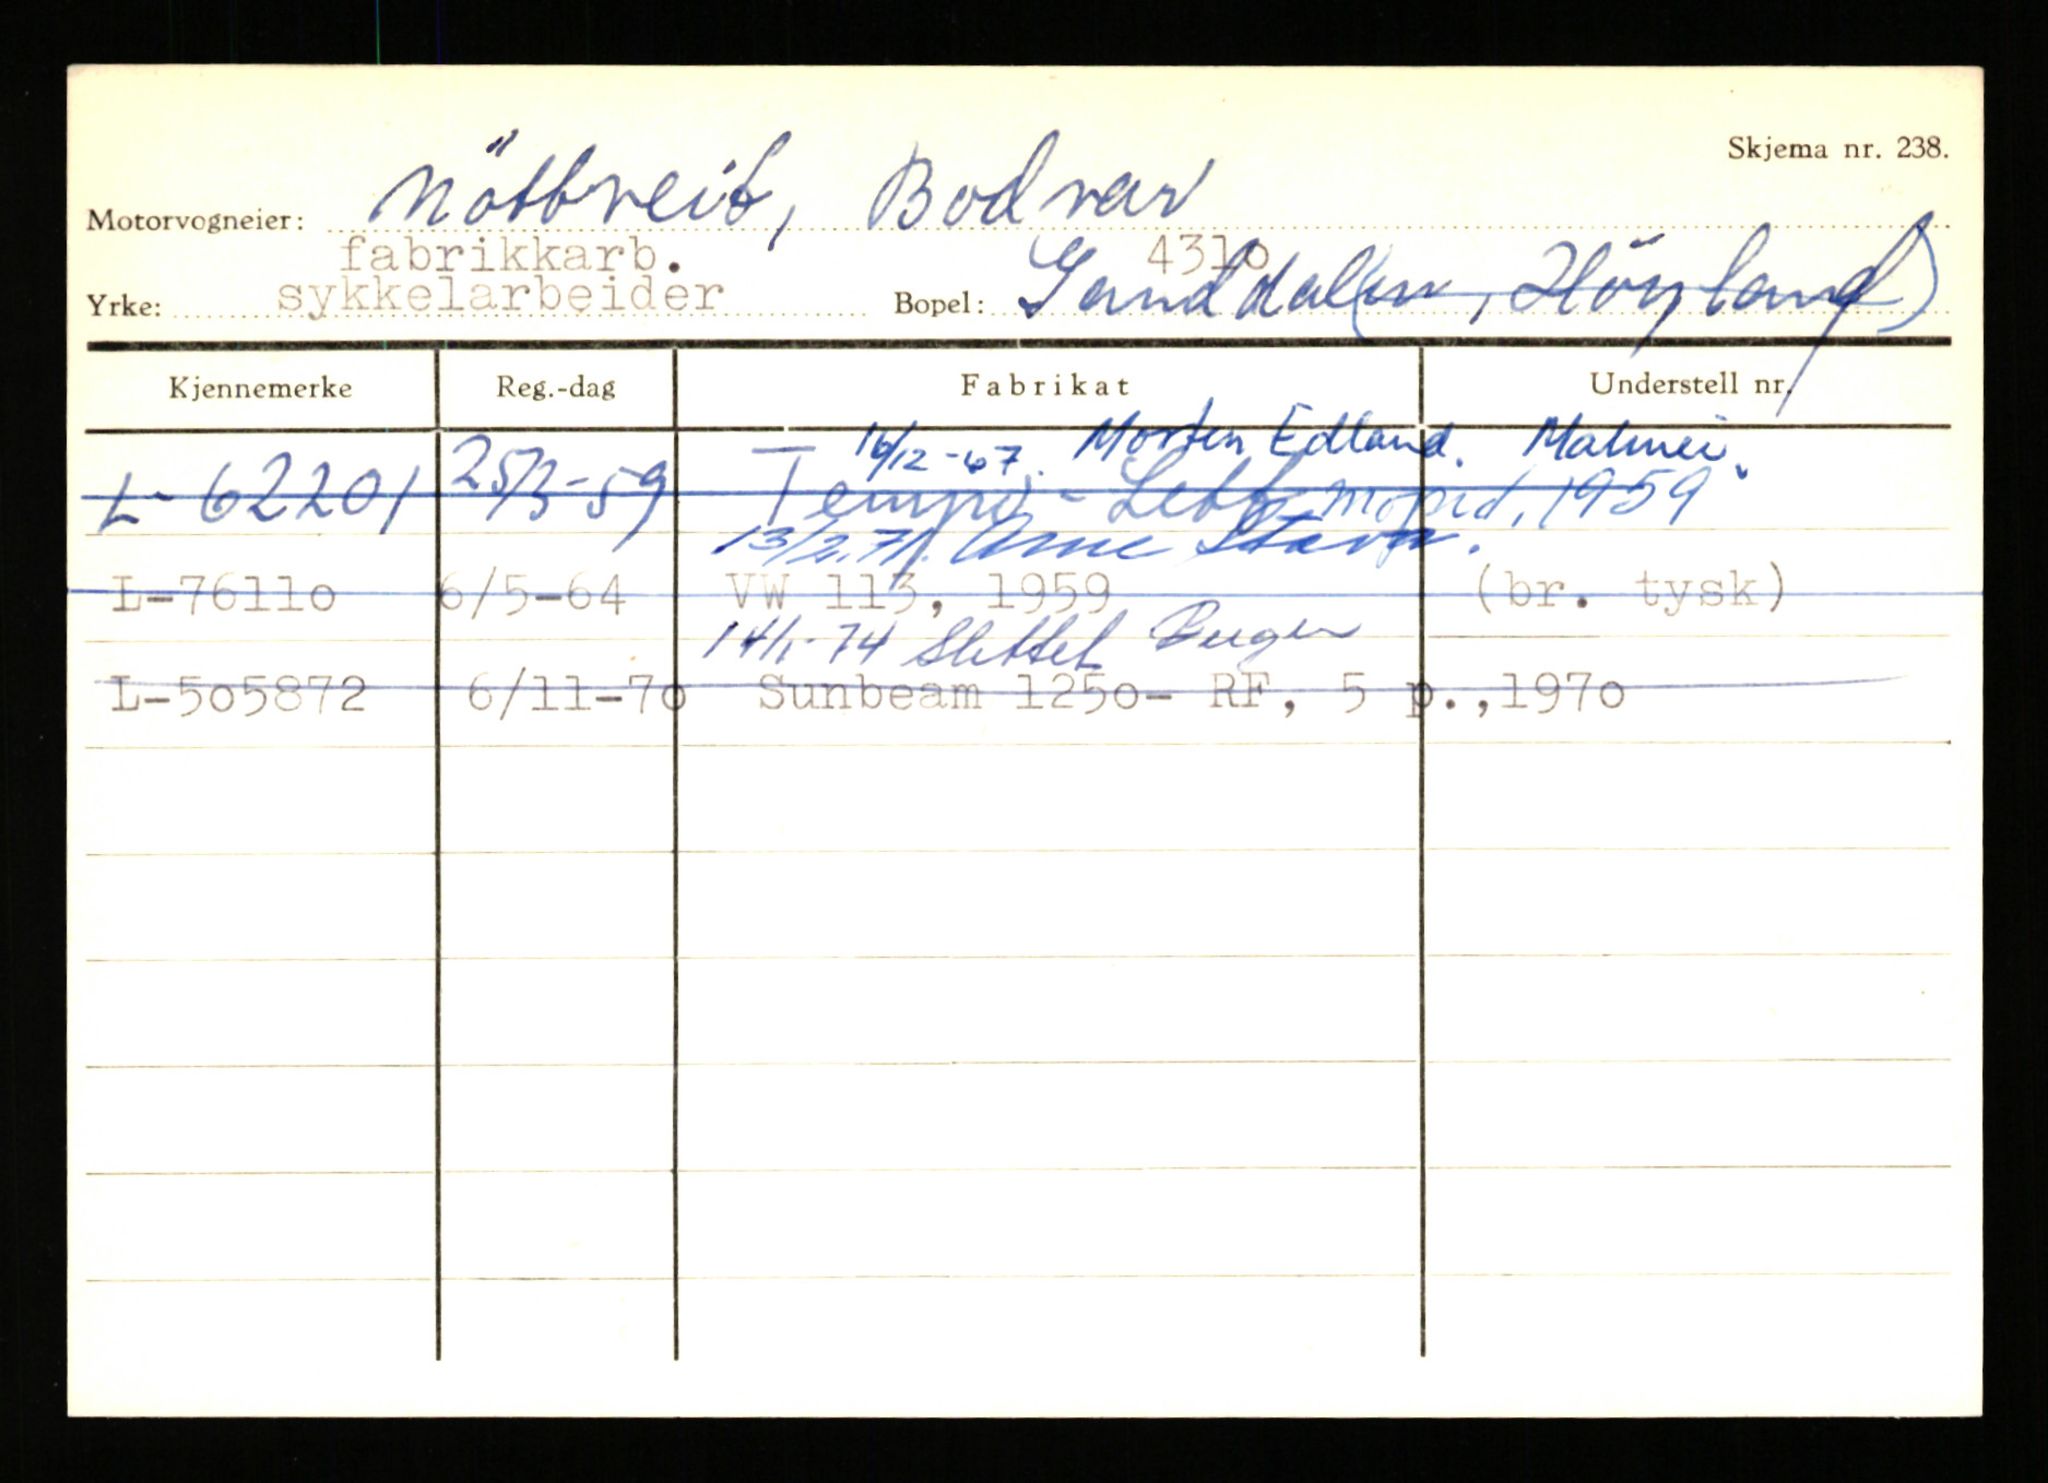 Skjema nr. 238.
Motorvogneier: Nöttveit, Bodvar
fabrikkarb. 4310
Yrke: sykkelarbeider Bopel: Ganddal(en, Höyland)
Kjennemerke Reg.-dag Fabrikat Understell nr.
16/12-67. Morten Edland. Malmei.
L-62201 25/3-59 Tempo-Lett moped, 1959
13/2.71. Arne Stava.
L-76110 6/5-64 VW 113, 1959 (br. tysk)
14/1-74 Slettet
L-505872 6/11-70 Sunbeam 1250- RF, 5 p.,1970